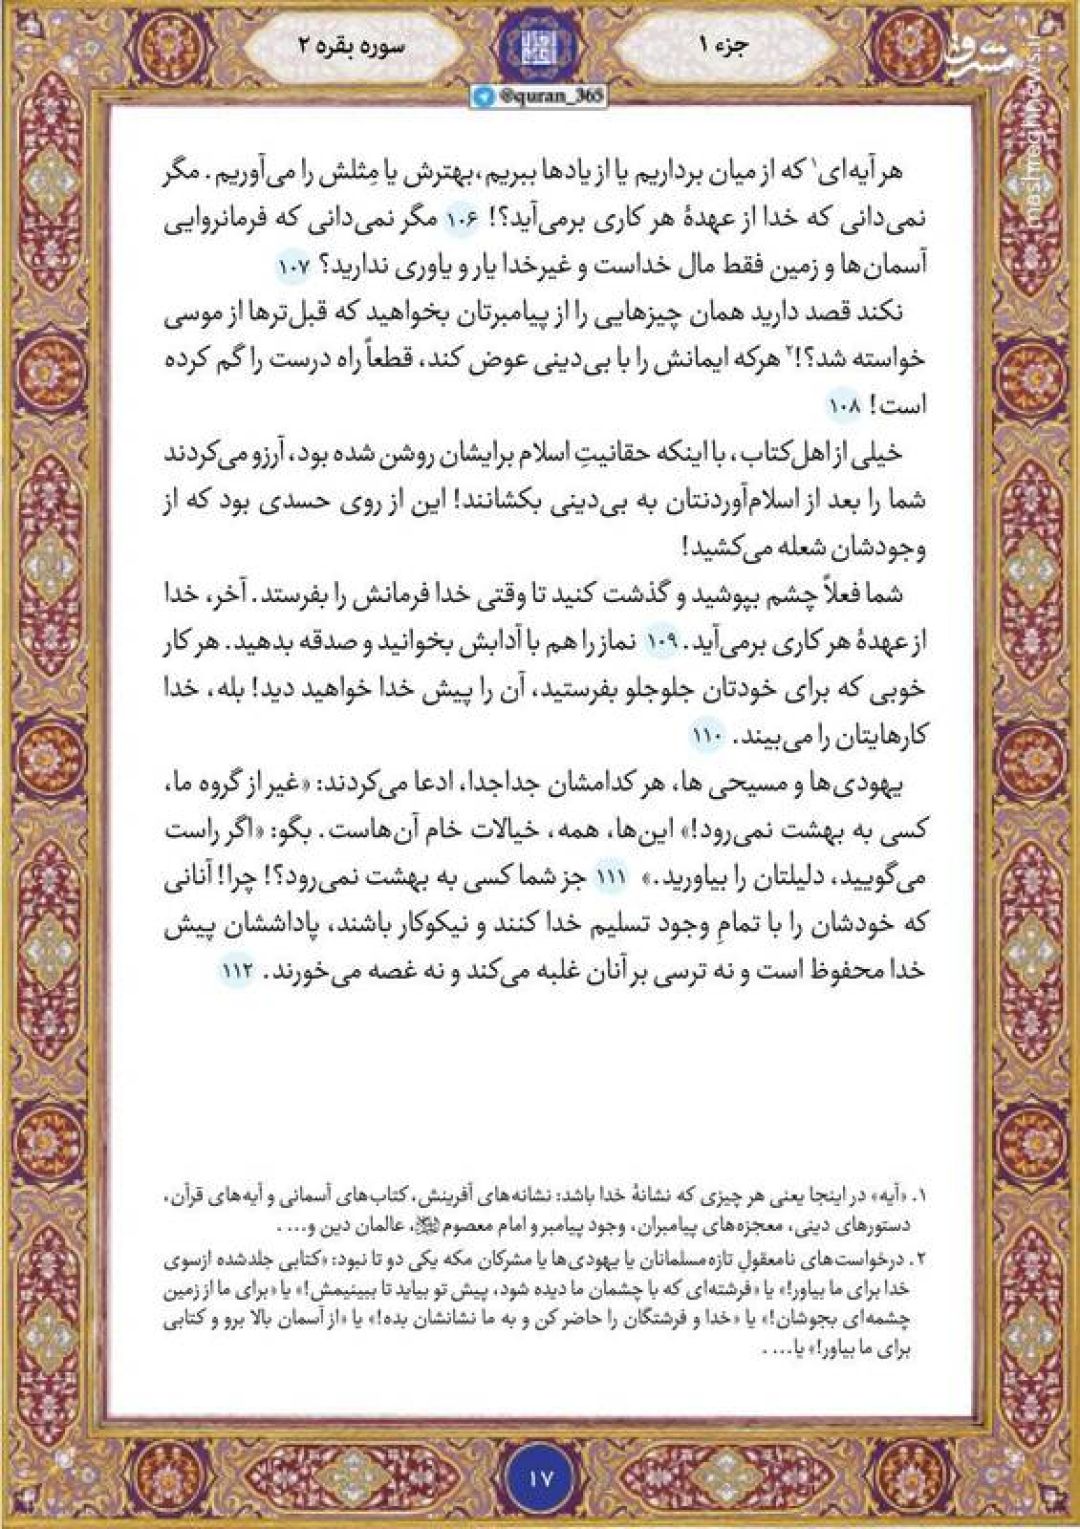 جزء ۱
سوره بقره ۲
مشرق
mashreghnews.ir
@quran_365
هر آیه‌ای۱ که از میان برداریم یا از یادها ببریم، بهترش یا مِثلش را می‌آوریم. مگر
نمی‌دانی که خدا از عهدهٔ هر کاری برمی‌آید؟! ۱۰۶ مگر نمی‌دانی که فرمانروایی
آسمان‌ها و زمین فقط مال خداست و غیرخدا یار و یاوری ندارید؟ ۱۰۷
نکند قصد دارید همان چیزهایی را از پیامبرتان بخواهید که قبل‌ترها از موسی
خواسته شد؟!۲ هرکه ایمانش را با بی‌دینی عوض کند، قطعاً راه درست را گم کرده
است! ۱۰۸
خیلی از اهل‌کتاب، با اینکه حقانیتِ اسلام برایشان روشن شده بود، آرزو می‌کردند
شما را بعد از اسلام‌آوردنتان به بی‌دینی بکشانند! این از روی حسدی بود که از
وجودشان شعله می‌کشید!
شما فعلاً چشم بپوشید و گذشت کنید تا وقتی خدا فرمانش را بفرستد. آخر، خدا
از عهدهٔ هر کاری برمی‌آید. ۱۰۹ نماز را هم با آدابش بخوانید و صدقه بدهید. هر کار
خوبی که برای خودتان جلوجلو بفرستید، آن را پیش خدا خواهید دید! بله، خدا
کارهایتان را می‌بیند. ۱۱۰
یهودی‌ها و مسیحی ها، هر کدامشان جداجدا، ادعا می‌کردند: «غیر از گروه ما،
کسی به بهشت نمی‌رود!» این‌ها، همه، خیالات خام آن‌هاست. بگو: «اگر راست
می‌گویید، دلیلتان را بیاورید.» ۱۱۱ جز شما کسی به بهشت نمی‌رود؟! چرا! آنانی
که خودشان را با تمامِ وجود تسلیم خدا کنند و نیکوکار باشند، پاداششان پیش
خدا محفوظ است و نه ترسی بر آنان غلبه می‌کند و نه غصه می‌خورند. ۱۱۲
۱. «آیه» در اینجا یعنی هر چیزی که نشانهٔ خدا باشد: نشانه‌های آفرینش، کتاب‌های آسمانی و آیه‌های قرآن،
دستورهای دینی، معجزه‌های پیامبران، وجود پیامبر و امام معصوم، عالمان دین و... .
۲. درخواست‌های نامعقولِ تازه‌مسلمانان یا یهودی‌ها یا مشرکان مکه یکی دو تا نبود: «کتابی جلدشده ازسوی
خدا برای ما بیاور!» یا «فرشته‌ای که با چشمان ما دیده شود، پیش تو بیاید تا ببینیمش!» یا «برای ما از زمین
چشمه‌ای بجوشان!» یا «خدا و فرشتگان را حاضر کن و به ما نشانشان بده!» یا «از آسمان بالا برو و کتابی
برای ما بیاور!» یا... .
۱۷